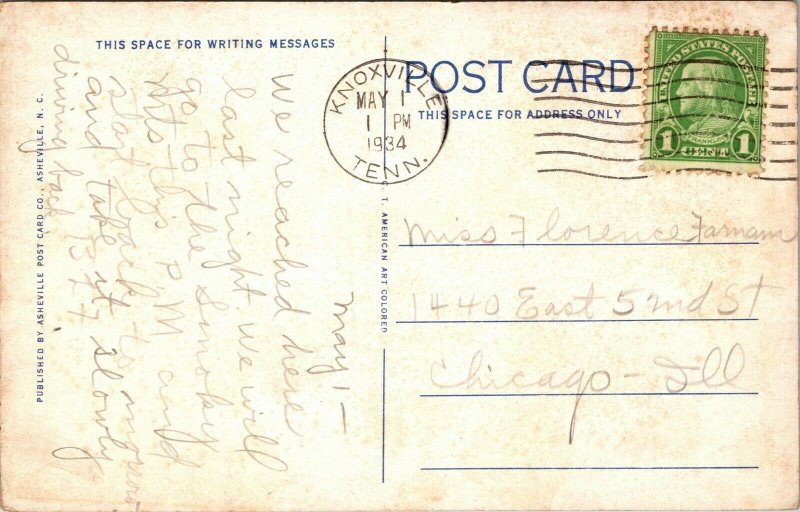 THIS SPACE FOR WRITING MESSAGES
POST CARD
THIS SPACE FOR ADDRESS ONLY
KNOXVILLE
MAY 1
1 PM
1934
TENN.
UNITED STATES POSTAGE
FRANKLIN
1 CENT 1
May 1 —
We reached here
last night. We will
go to the Smoky
Mts this P.M. and
start back tomorrow
and take it slowly
driving back.
Miss Florence Farnam
1440 East 52nd St
Chicago - Ill
PUBLISHED BY ASHEVILLE POST CARD CO., ASHEVILLE, N. C.
C. T. AMERICAN ART COLORED